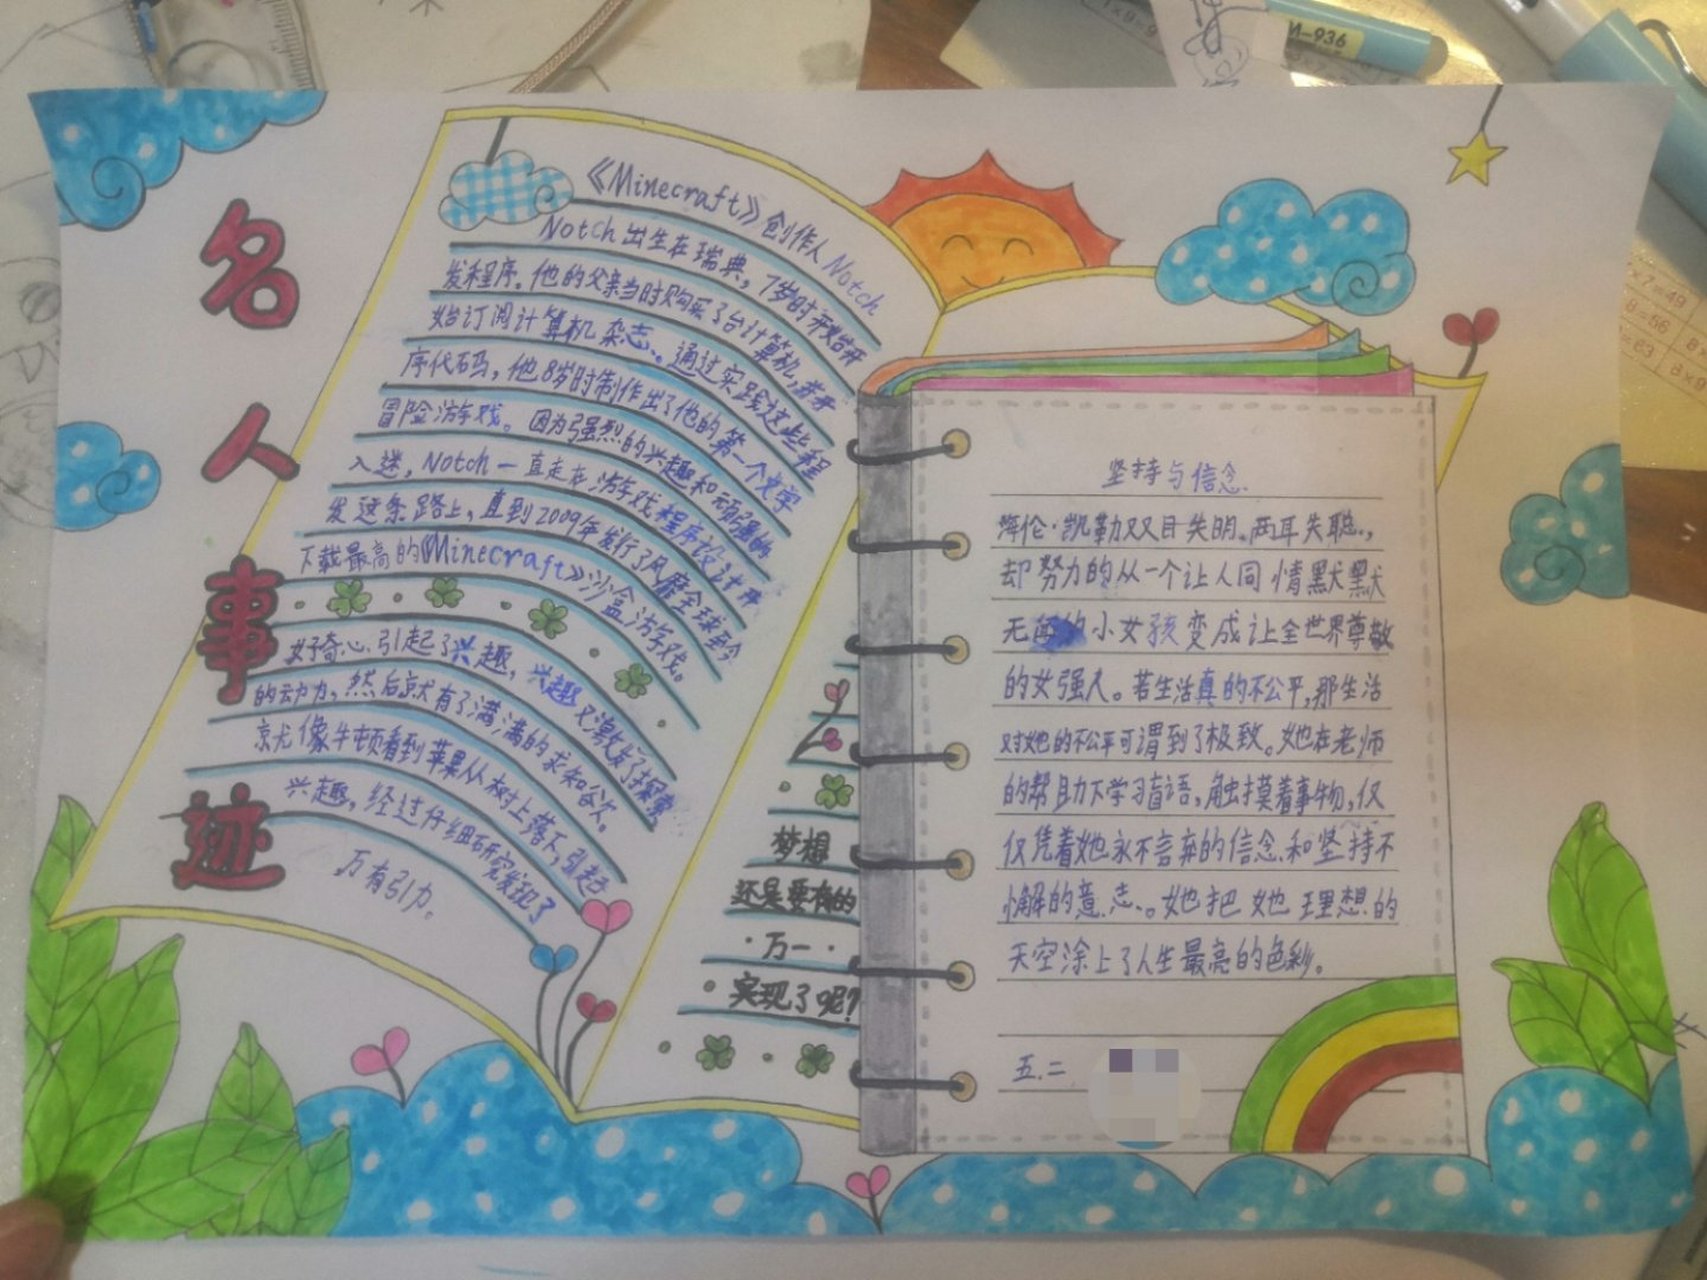 名人事迹
《Minecraft》创作人Notch
Notch出生在瑞典，7岁时开始开
发程序。他的父亲当时购买了台计算机，着手
始订阅计算机杂志、通过实践这些程
序代码，他8岁时制作出了他的第一个文字
冒险游戏。因为强烈的兴趣和顽强的
入迷，Notch一直走在游戏程序设计开
发这条路上，直到2009年发行了风靡全球至今
下载最高的《Minecraft》沙盒游戏。
好奇心引起了兴趣，兴趣又激发了探索
的动力，然后就有了满满的求知欲。
就像牛顿看到苹果从树上落下，引起
兴趣，经过仔细研究发现了
万有引力。
梦想
还是要有的
·万一·
实现了呢？
坚持与信念
海伦·凯勒双目失明、两耳失聪，
却努力的从一个让人同情默默
无闻的小女孩变成让全世界尊敬
的女强人。若生活真的不公平，那生活
对她的不公平可谓到了极致。她在老师
的帮助下学习盲语，触摸着事物，仅
仅凭着她永不言弃的信念和坚持不
懈的意志。她把她理想的
天空涂上了人生最亮的色彩。
五.二
И-936
8=56